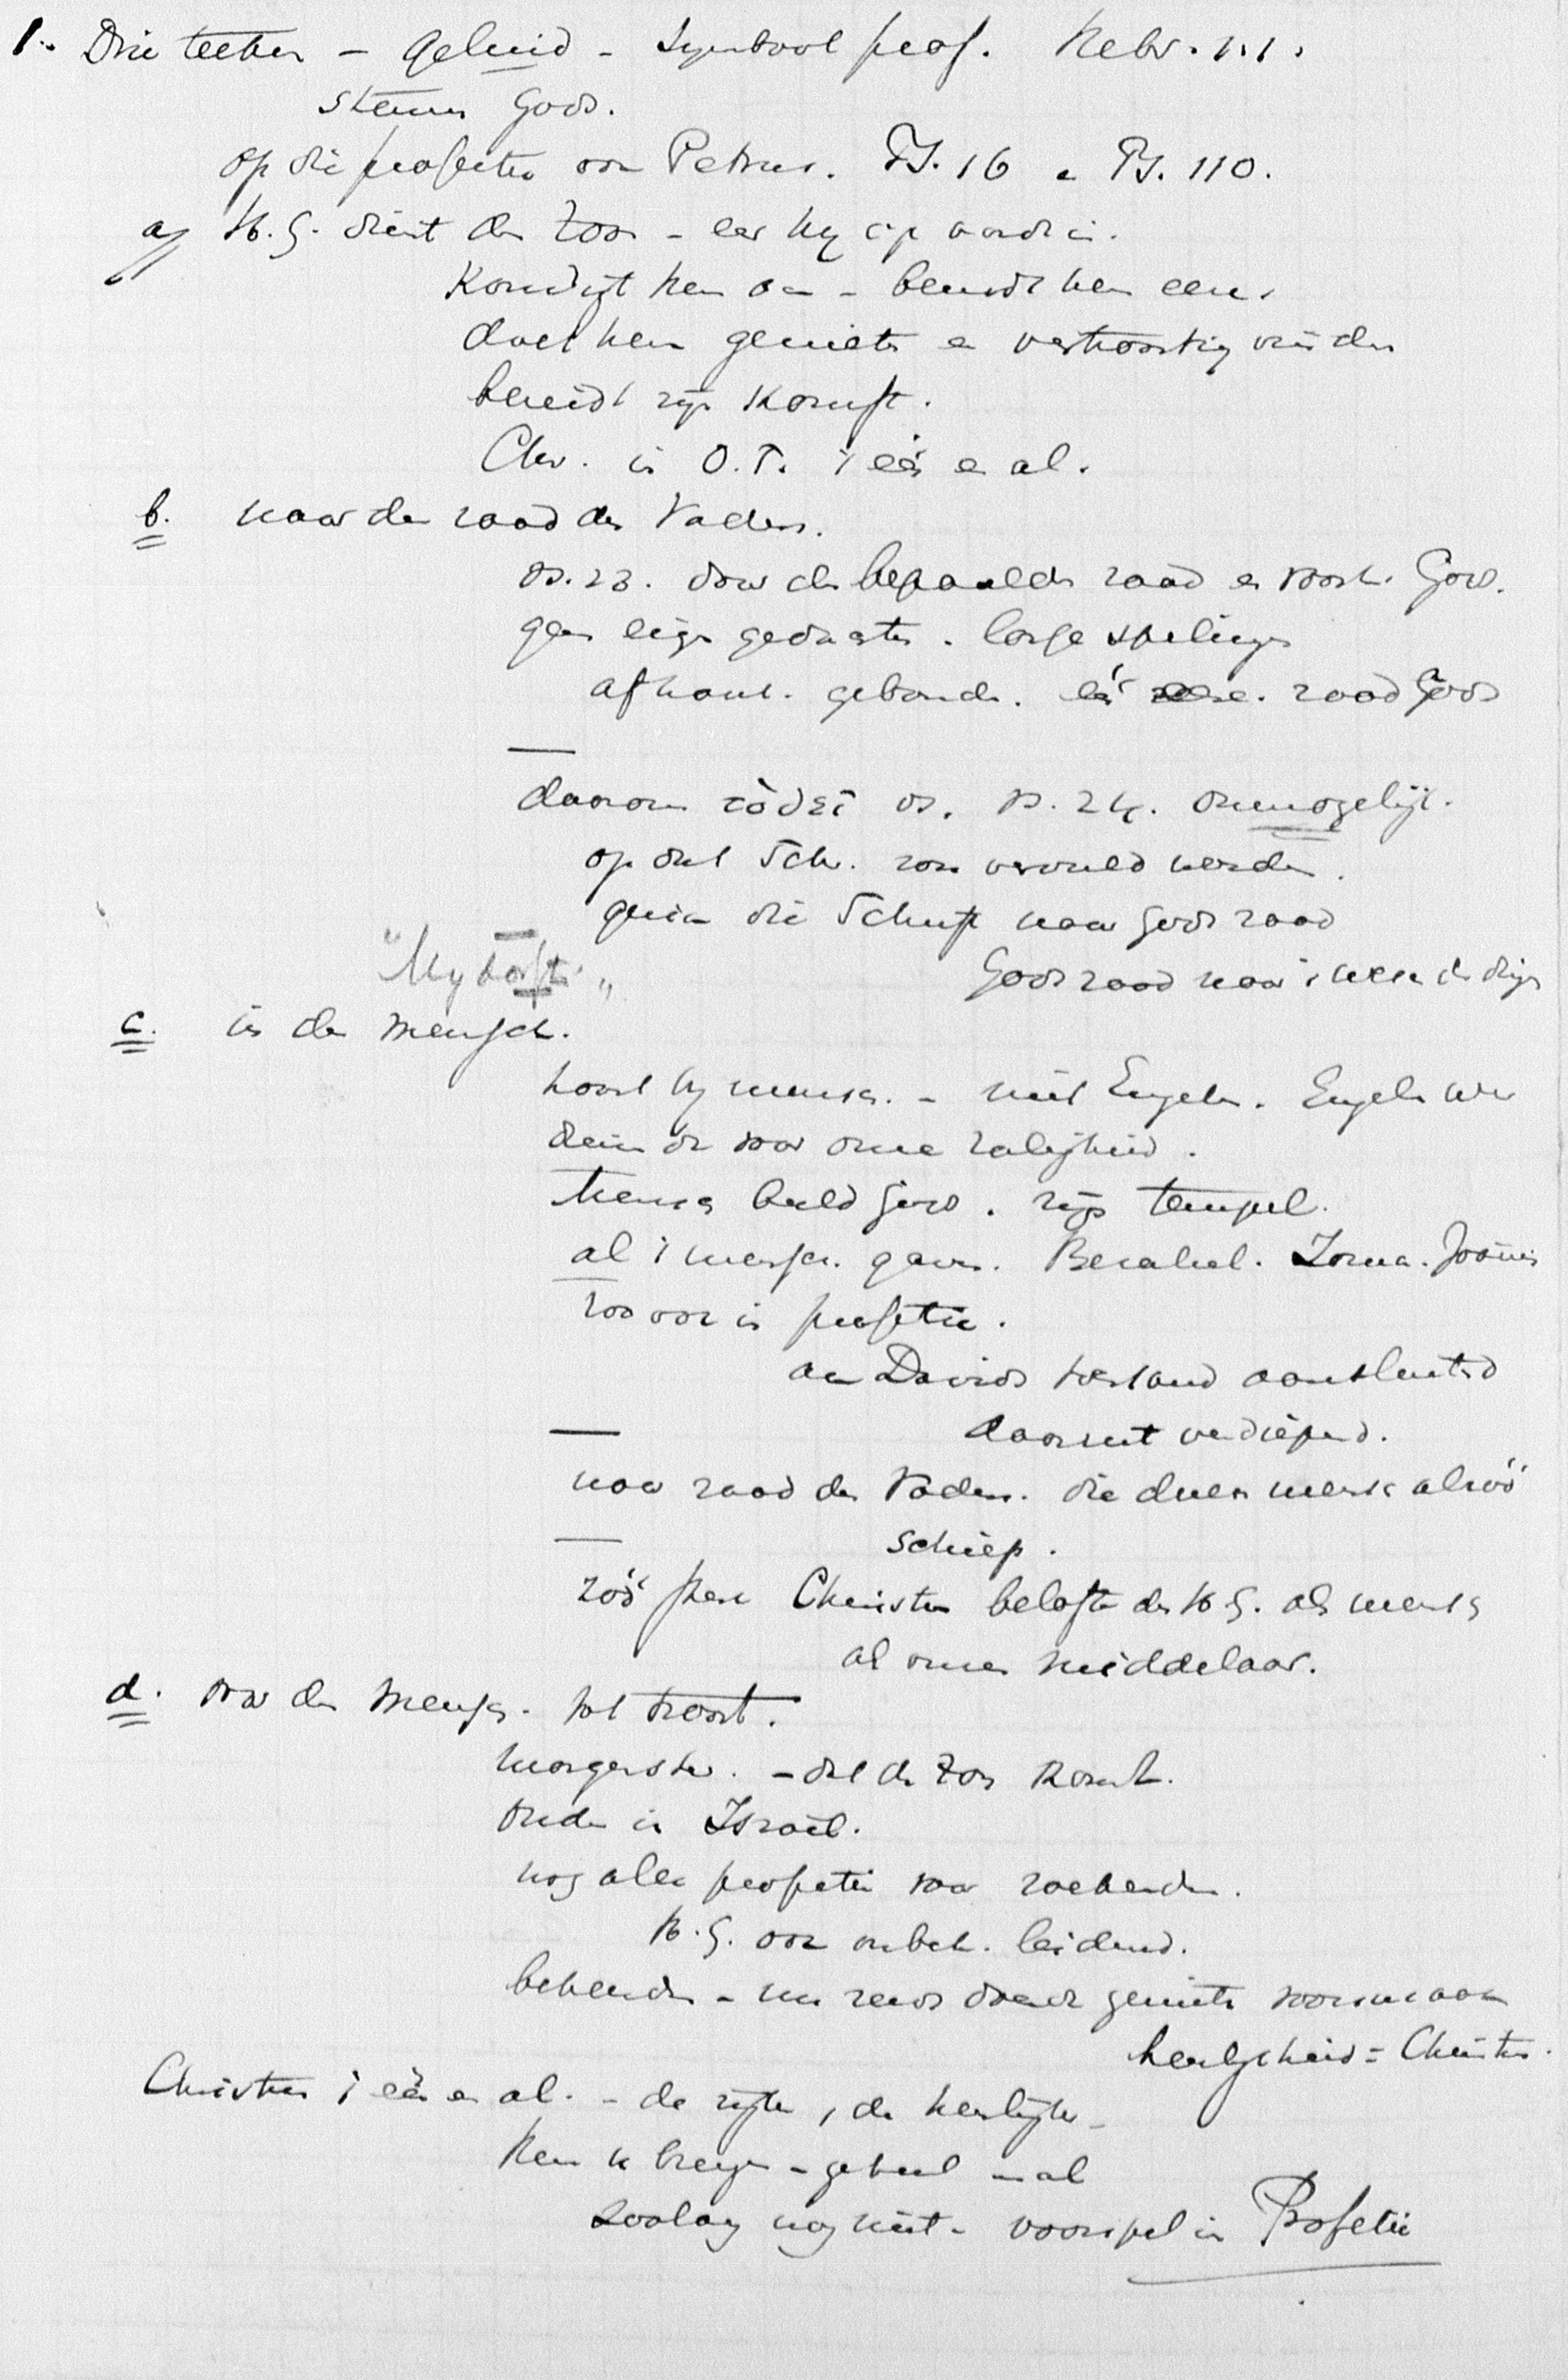 1. Drie teeken - geluid - Symbool prof. Hebr. 1:1.
stem Gods.
op die profetie van Petrus. Ps. 16 en Ps. 110.
a) H.G. dient den Zoon - eer hij op aarde is.
Kondigt hem aan - bemidt hem eer
doet hem genieten en vertroosting vinden
bereidt zijn komst.
Chr. in O.T. 1 één en al.
b. naar den raad des Vaders.
vs. 23. door den bepaalden raad en voork. Gods.
geen eigen gedachten. losse spelingen
afhank. gebonden. één raad Gods
daarom zóózéér vs. 24. onmogelijk.
op dat Schr. zou vervuld werden.
geen die Schrift naar Gods raad
"Mij dorst"
Gods raad naar 't wezen der dingen
c. in den mensch.
hoort bij mensch. - niet Engelen. Engelen
dienen voor onze zaligheid.
Mensch beeld Gods. zijn tempel.
al 't mensch. gaven. Bezaleel. Joannes
zoo ook in profetie.
aan Davids toestand aansluitend
daaruit verdiepend.
naar raad des Vaders. die den mensch alzóó
schiep.
zóó Christus belofte des H.G. als mensch
als onzen Middelaar.
d. voor den mensch. tot troost.
Morgenster. - dat de Zon komt.
Ouden in Israël.
nog alle profetie voor zoekenden.
H.G. ook onbek. leidend.
bekenden - nu reeds genieten voorsmaak
heerlijkheid = Christus.
Christus 1 één en al. - de rijke, de heerlijke -
Hem te krijgen - geheel en al
zoolang nog niet - voorspel in Profetie